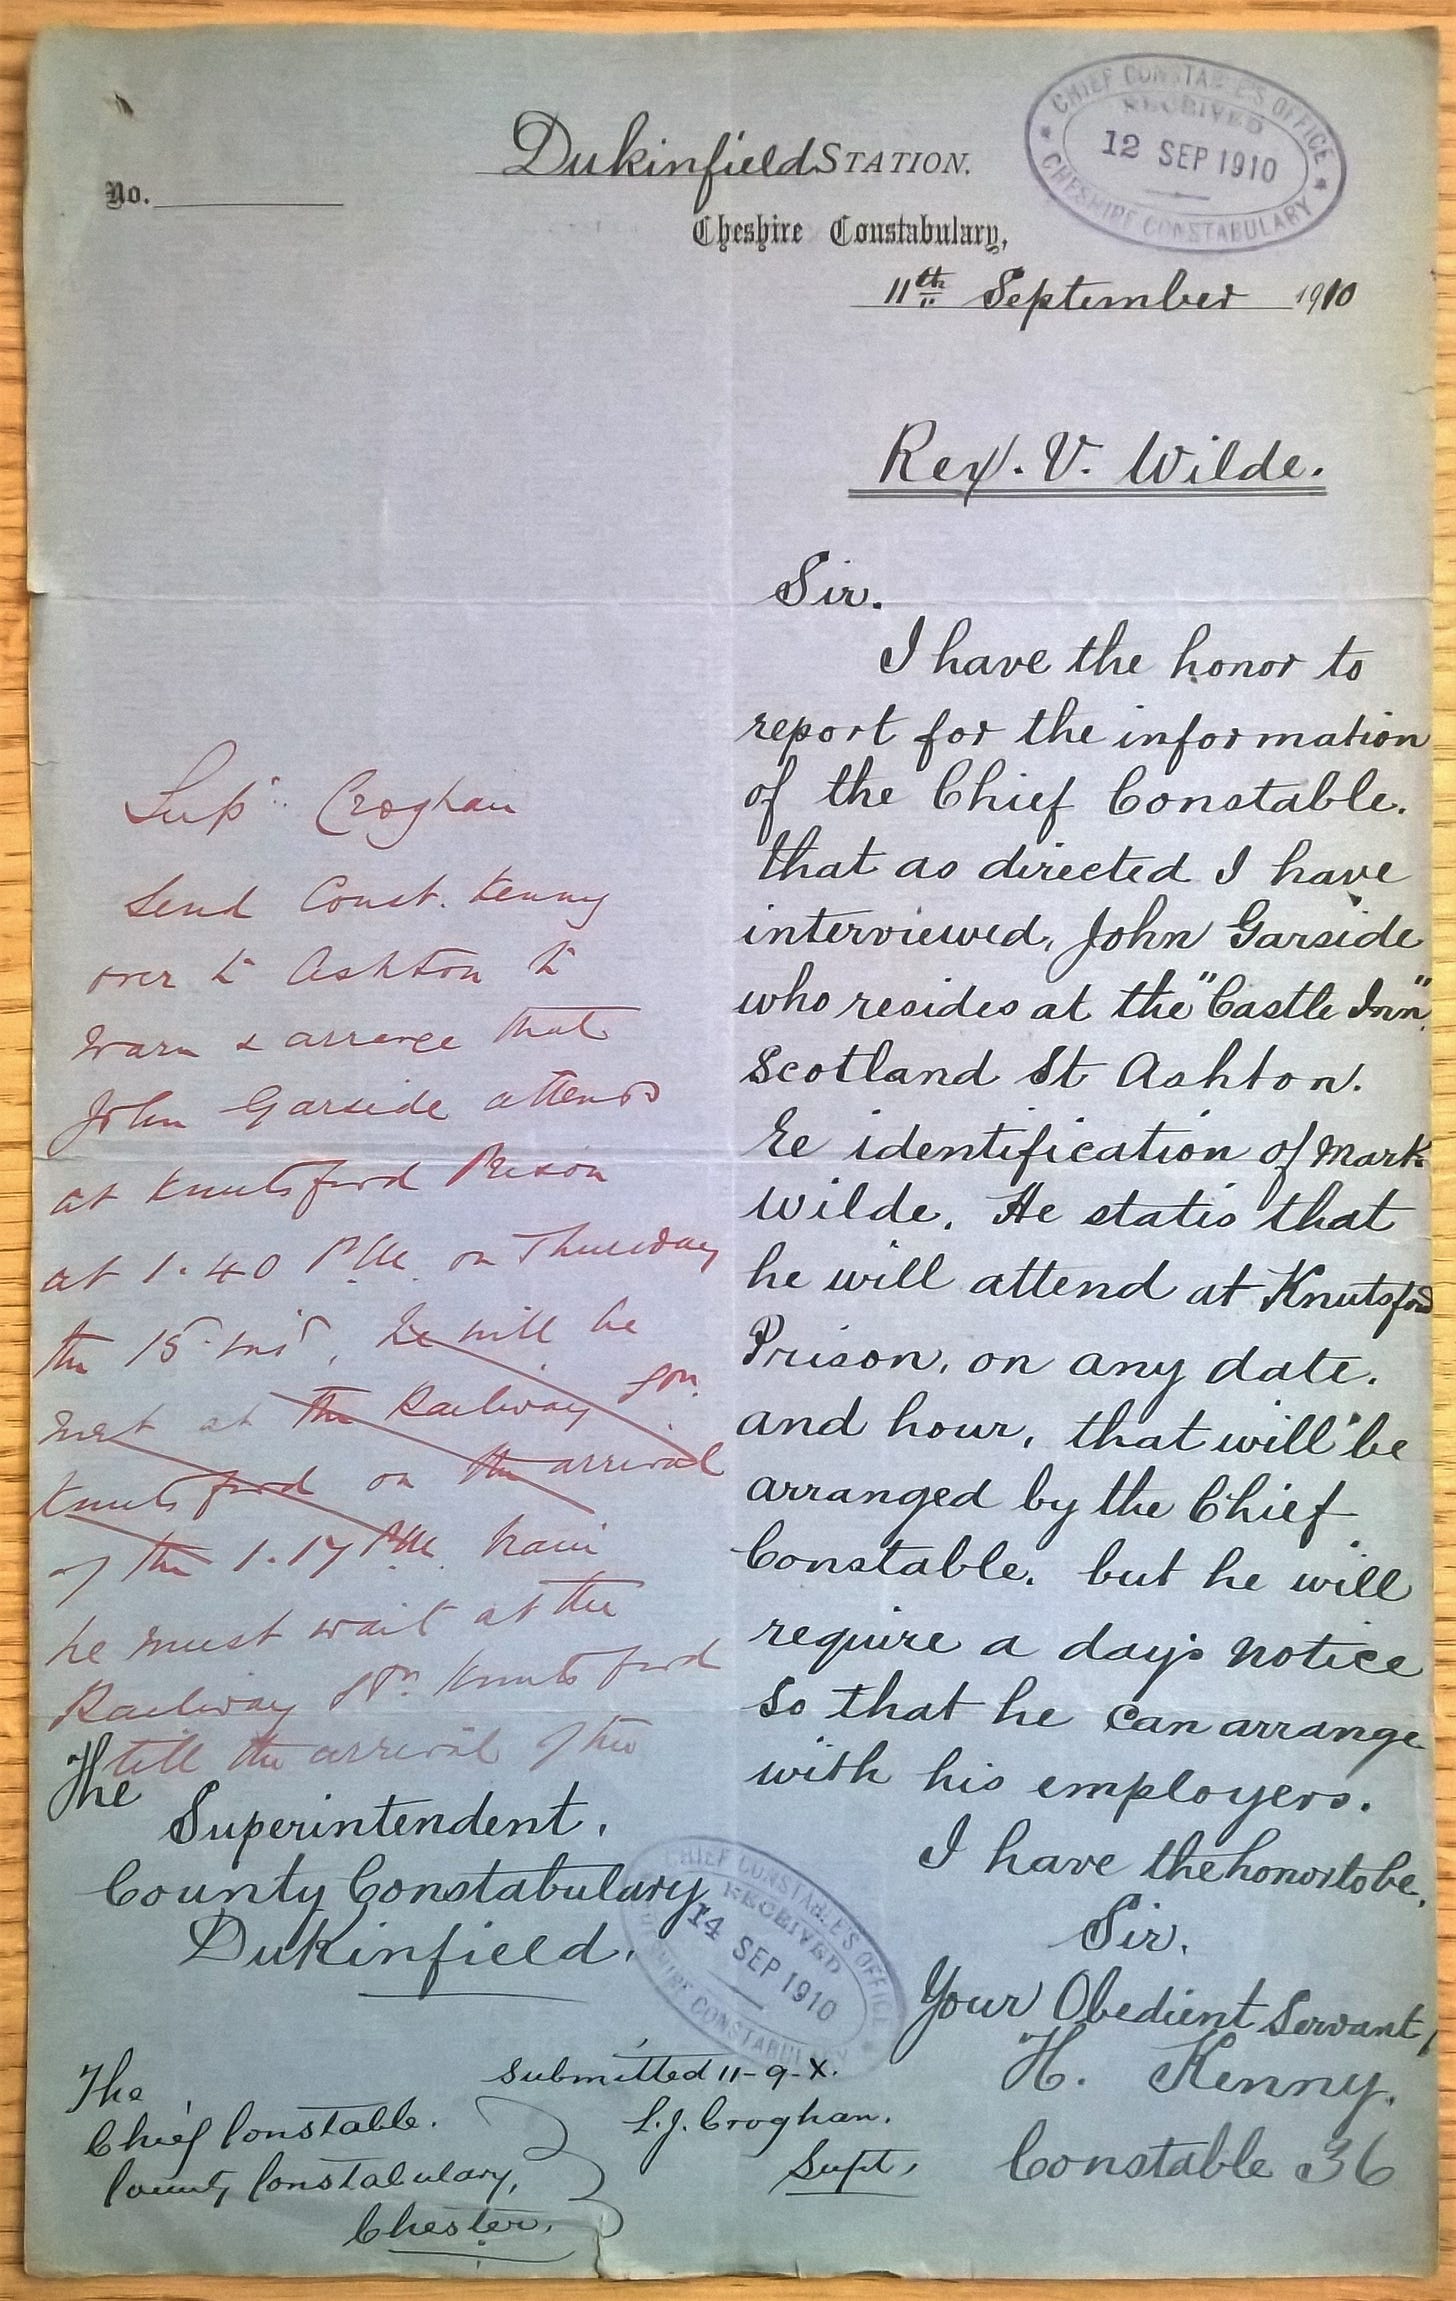 CHIEF CONSTABLE'S OFFICE
RECEIVED
12 SEP 1910
CHESHIRE CONSTABULARY
Dukinfield STATION.
No.
Cheshire Constabulary,
11th September 1910
Rex. V. Wilde.
Sir.
I have the honor to
report for the information
of the Chief Constable.
that as directed I have
interviewed, John Garside
who resides at the "Castle Inn"
Scotland St Ashton.
Re identification of Mark
Wilde. He states that
he will attend at Knutsford
Prison, on any date.
and hour, that will be
arranged by the Chief
Constable. but he will
require a days notice
so that he can arrange
with his employers.
I have the honor to be,
Sir.
Your Obedient Servant,
H. Kenny.
Constable 36
Supt. Croghan
Send Const. Kenny
over to Ashton to
warn & arrange that
John Garside attends
at Knutsford Prison
at 1.40 P.M. on Thursday
the 15 inst. he will be
met at the Railway Stn.
Knutsford on the arrival
of the 1.17 P.M. train
he must wait at the
Railway Stn. Knutsford
till the arrival of the
The
Superintendent.
County Constabulary
Dukinfield.
CHIEF CONSTABLE'S OFFICE
RECEIVED
14 SEP 1910
CHESHIRE CONSTABULARY
The
Chief Constable.
County Constabulary,
Chester.
Submitted 11-9-X.
L.J. Croghan.
Supt.